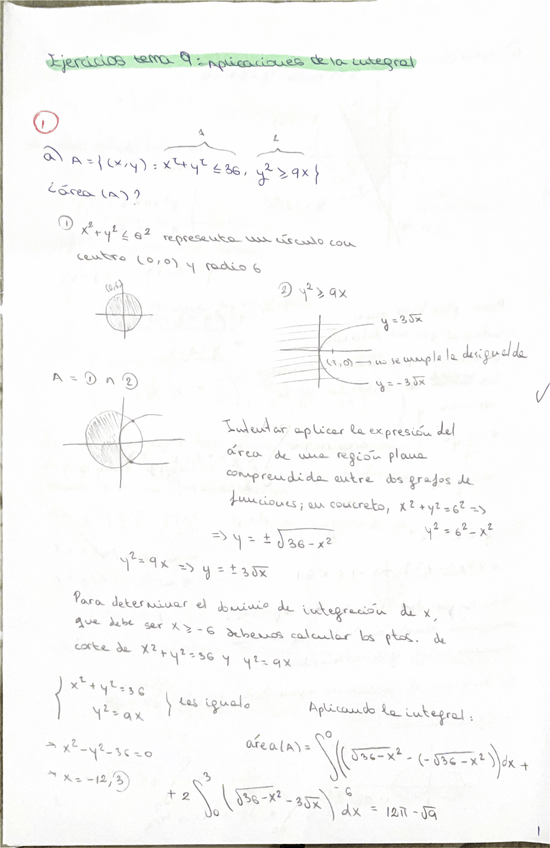 Ejercicios tema 9: Aplicaciones de la integral
1
1 2
a) A = {(x,y) : x²+y² ≤ 36, y² ≥ 9x}
¿área (A)?
① x²+y² ≤ 6² representa un círculo con
centro (0,0) y radio 6
(0,6)
② y² ≥ 9x
y = 3√x
(1,0) → no se cumple la desigualda
y = -3√x
A = ① ∩ ②
Intentar aplicar la expresión del
área de una región plana
comprendida entre dos grafos de
funciones; en concreto, x²+y²=6² =>
y² = 6² - x²
=> y = ± √36-x²
y² = 9x => y = ± 3√x
Para determinar el dominio de integración de x,
que debe ser x ≥ -6 debemos calcular los ptos. de
corte de x²+y²=36 y y²=9x
{ x²+y²=36
y²=9x } Les igualo
Aplicando la integral:
→ x²-y²-36=0
→ x = -12, 3
área(A) = ∫₋₆⁰ ((√36-x² - (-√36-x²)) dx +
+ 2 ∫₀³ (√36-x² - 3√x) dx = 12π - √9
1